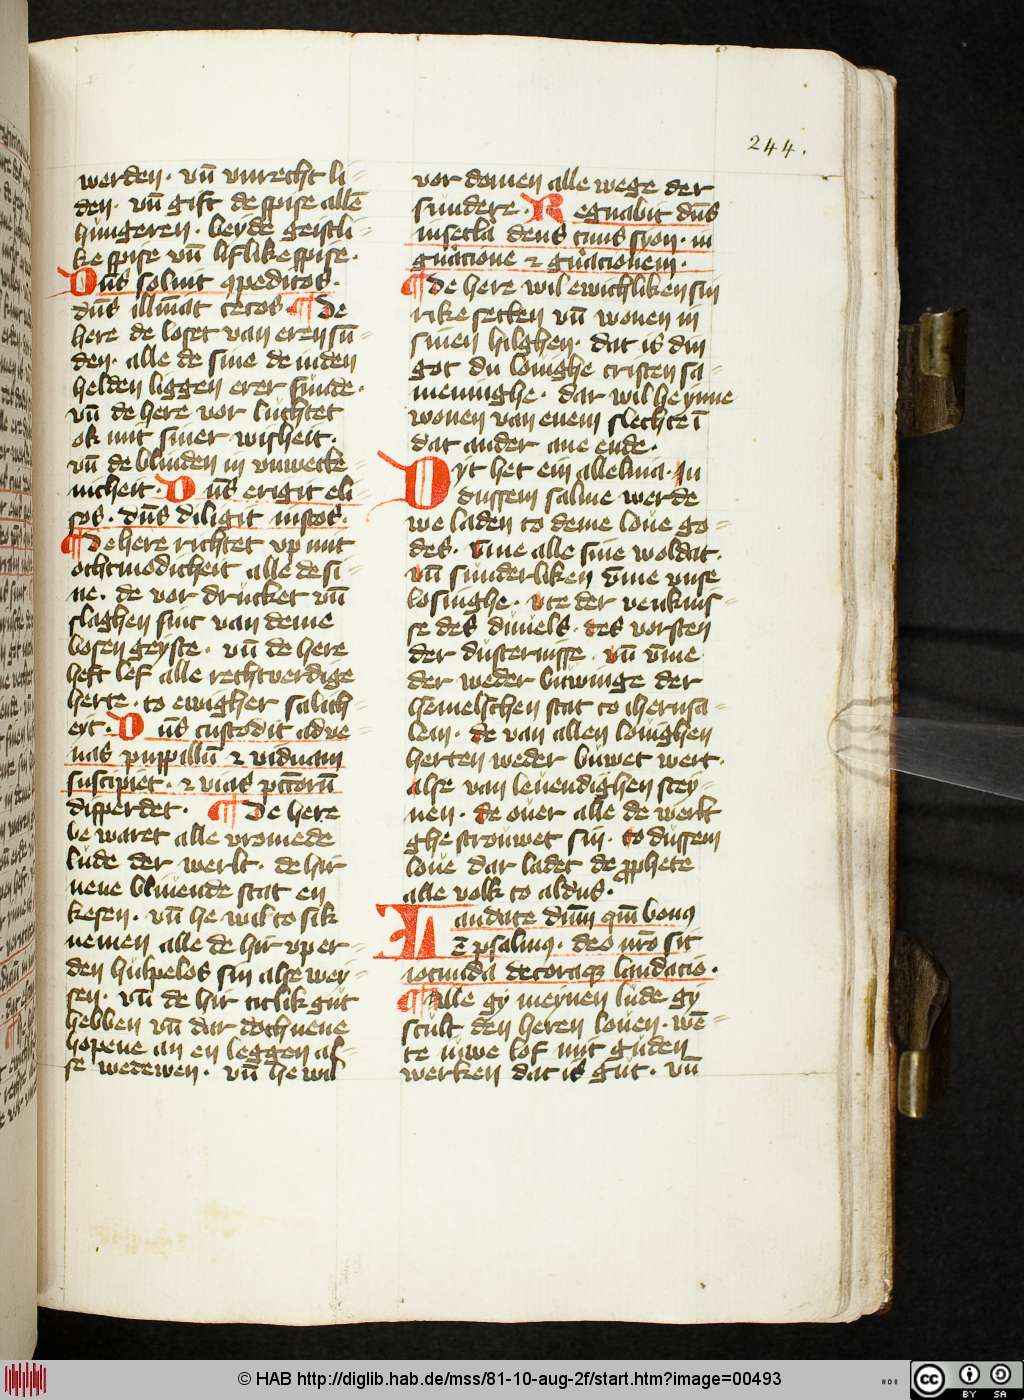 244.
werden · vn̄ vnrecht li=
den · vn̄ gift de spise allē
hungeren · beyde geistli=
ke spise vn̄ liflike spise ·
Dn̄s soluit ꝯpeditos ·
dn̄s illūnat cecos ¶ De
here de loset van eren sū=
den · alle de sine de in den
helden liggen erer sunde ·
vn̄ de here vor luchtet
ok mit siner wisheit ·
vn̄ de blinden in vnwette=
nicheit · Dn̄s erigit eli=
sos · dn̄s diligit iustos ·
¶ De here richtet vp mit
othmodicheit alle de si=
ne · de vor drucket vn̄
slaghen sint van deme
bosen geyste · vn̄ de here
heft lef alle rechtverdige
herte · to ewigher salich=
eit · Dn̄s custodit adue=
nas puppillū · ⁊ viduam
suscipiet · ⁊ vias pctōrū
disperdet · ¶ De here
be waret alle vromede
lude der werlt · de hir
nene bliuende stat en
kesen · vn̄ he wil to sik
nemen alle de hir vp er=
den hulpelos sin alse wey=
sen · vn̄ de hir titlik gut
hebben vn̄ dar doch nene
hopene an en leggen al=
se wedewen · vn̄ he wil
vor domen alle wege der
sundere · Regnabit dn̄s
in secla deus tuus syon · in
gn̄acione ⁊ gn̄acionem ·
¶ De here wil ewichliken sin
rike setten vn̄ wonen in
sinen hilghen · dat is din
got du louighe cristen sa=
meninghe · dar wil he ynne
wonen van enem slechte ī
dat ander ane ende ·
Dyt het ein alleluia · In
dussem salme werde
we laden to deme loue go=
des · vm̄e alle sine woldat ·
vn̄ sunderliken vm̄e vnse
losinghe · vte der venknis=
se des duuels · des vorsten
der dusternisse · vn̄ vm̄e
der weder buwinge der
hemelschen stat to iherusa=
lem · de van allen louighen
herten weder buwet wert ·
alse van leuendighen stey=
nen · de ouer alle de werlt
ghe strouwet sin · to dussem
loue dar ladet de ꝓphete
alle volk to aldus ·
Laudate dn̄m qm̄ bonꝯ
ē psalmꝯ · deo nr̄o sit
iocunda decoraqꝫ laudacio ·
¶ Alle gy meynen lude gy
scult den heren louen · wē=
te iuwe lof mit guden
werken dat is gut · vn̄
© HAB http://diglib.hab.de/mss/81-10-aug-2f/start.htm?image=00493
cc
BY SA